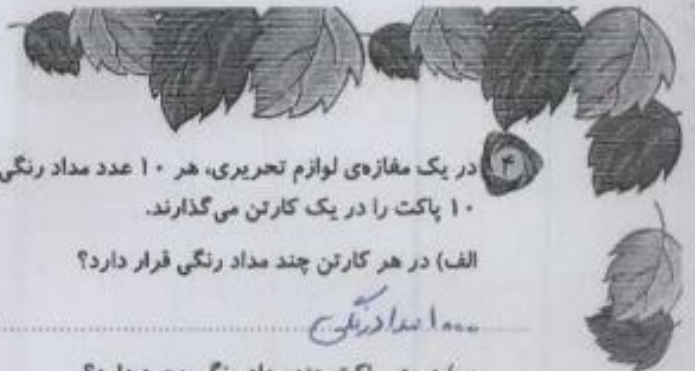 ۴ در یک مغازه‌ی لوازم تحریری، هر ۱۰ عدد مداد رنگی
۱۰ پاکت را در یک کارتن می‌گذارند.
الف) در هر کارتن چند مداد رنگی قرار دارد؟
۱۰۰۰ مداد رنگی